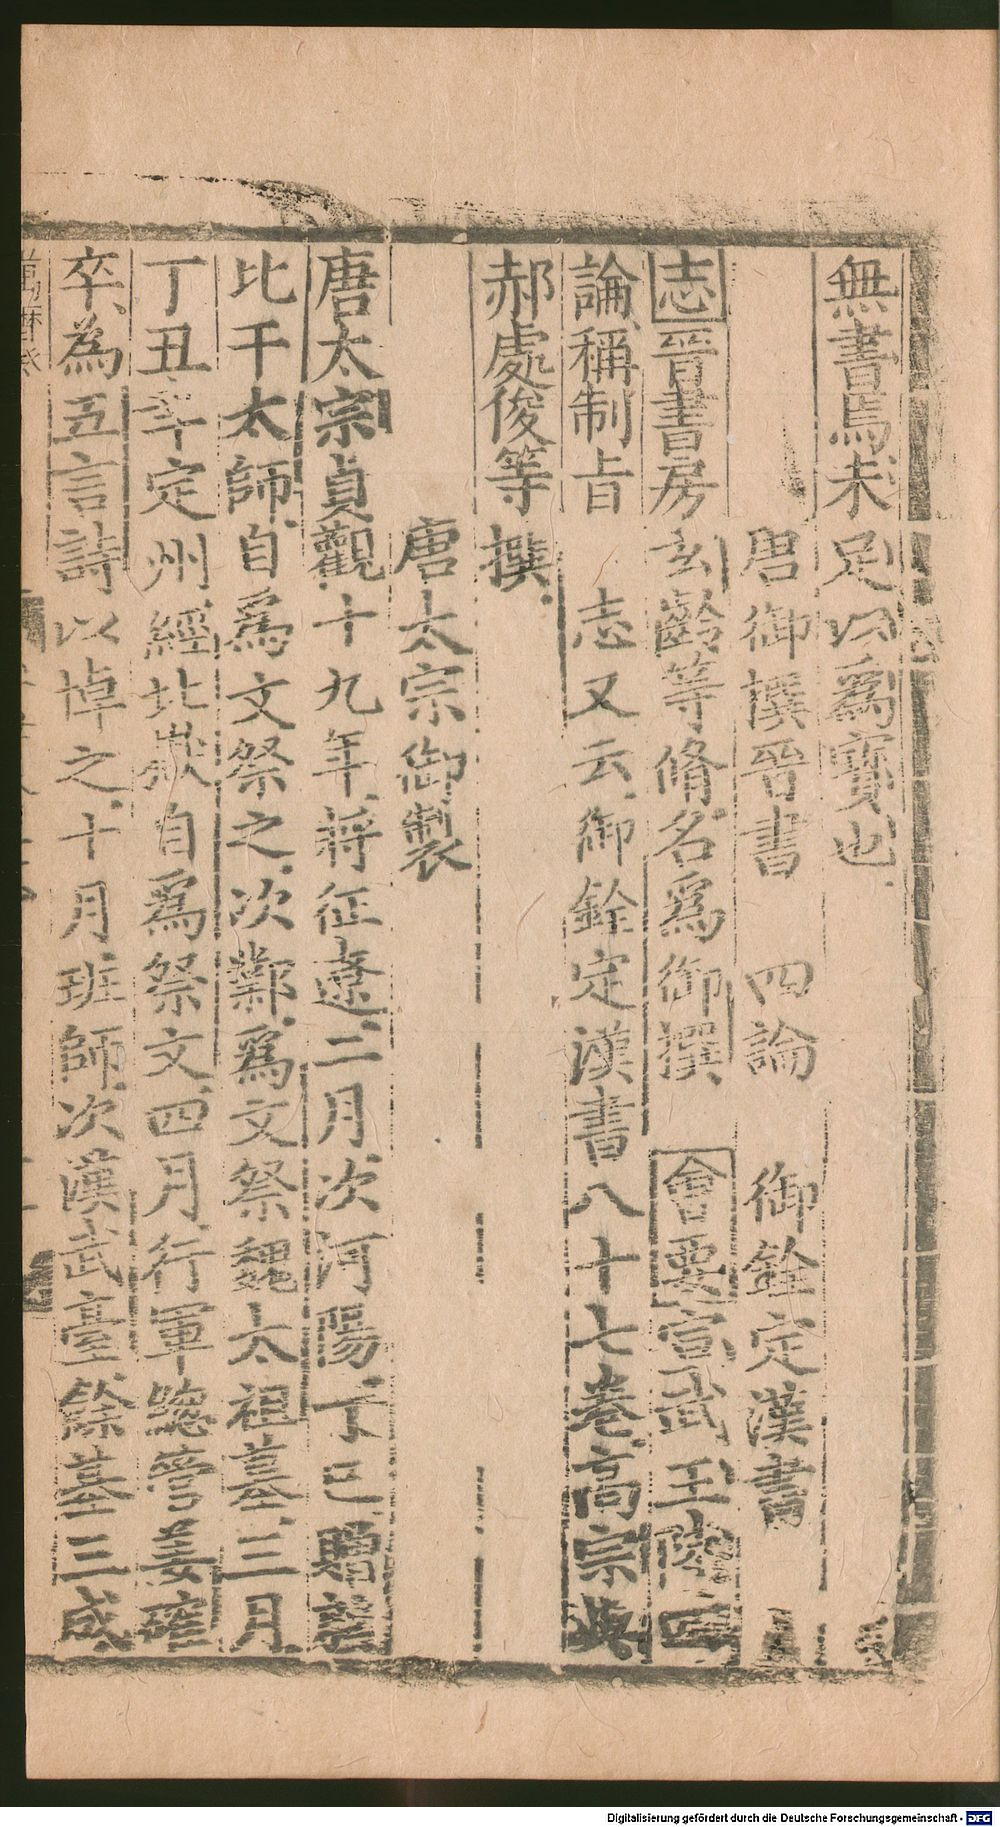 無書焉未足以為寶也
唐御撰晉書　四論　御銓定漢書
志晉書房玄齡等脩名爲御撰　會要宣武王陸四
論稱制旨　志又云御銓定漢書八十七卷高宗與
郝處俊等撰
唐太宗御製
唐太宗貞觀十九年將征遼二月次河陽丁巳贈
比干太師自爲文祭之次鄴爲文祭魏太祖墓三月
丁丑年定州經北嶽自爲祭文四月行軍總管姜確
卒為五言詩以悼之十月班師次漢武臺餘基三成
Digitalisierung gefördert durch die Deutsche Forschungsgemeinschaft - DFG